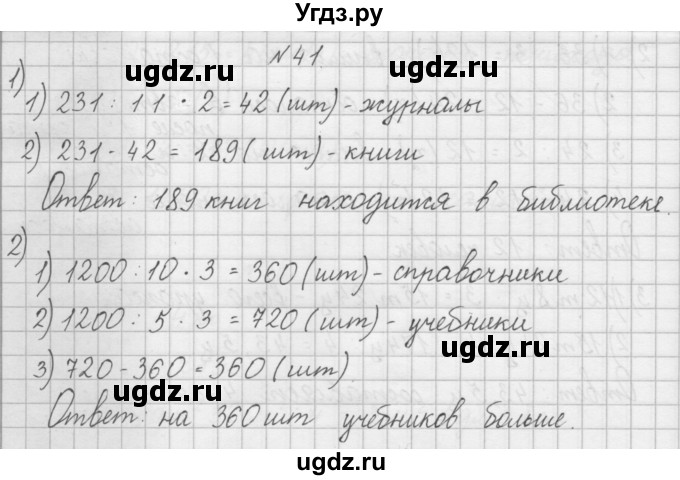 Угдз.ру
№ 41
1)
1) 231 : 11 · 2 = 42 (шт) - журналы
2) 231 - 42 = 189 ( шт) - книги
Ответ : 189 книг находится в библиотеке.
2)
1) 1200 : 10 · 3 = 360 (шт) - справочники
2) 1200 : 5 · 3 = 720 (шт) - учебники
3) 720 - 360 = 360 (шт)
Ответ : на 360 шт учебников больше.
ugdz.ru
ugdz.ru
ugdz.ru
ugdz.ru
ugdz.ru
ugdz.ru
ugdz.ru